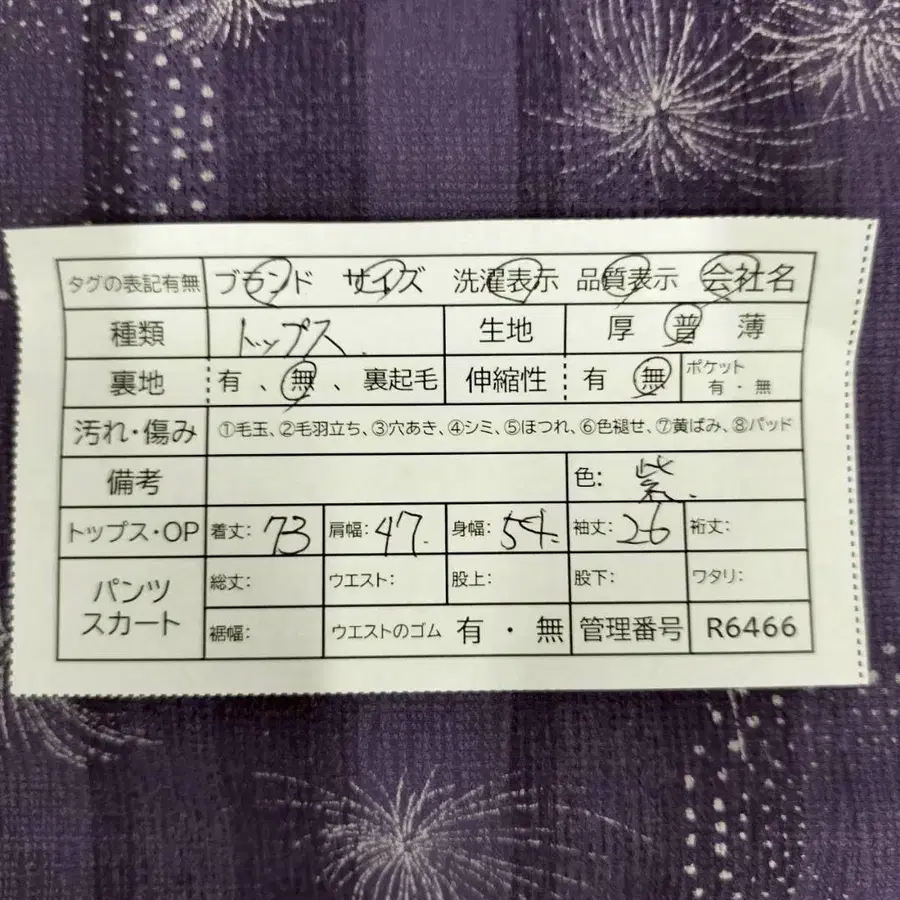 タグの表記有無 ブランド サイズ 洗濯表示 品質表示 会社名
種類 トップス. 生地 厚 普 薄
裏地 有 、 無 、 裏起毛 伸縮性 有 無 ポケット 有 ・ 無
汚れ・傷み ①毛玉、②毛羽立ち、③穴あき、④シミ、⑤ほつれ、⑥色褪せ、⑦黄ばみ、⑧パッド
備考 色: 紫.
トップス・OP 着丈: 73 肩幅: 47. 身幅: 54. 袖丈: 26 裄丈:
パンツ スカート 総丈: ウエスト: 股上: 股下: ワタリ:
裾幅: ウエストのゴム 有 ・ 無 管理番号 R6466